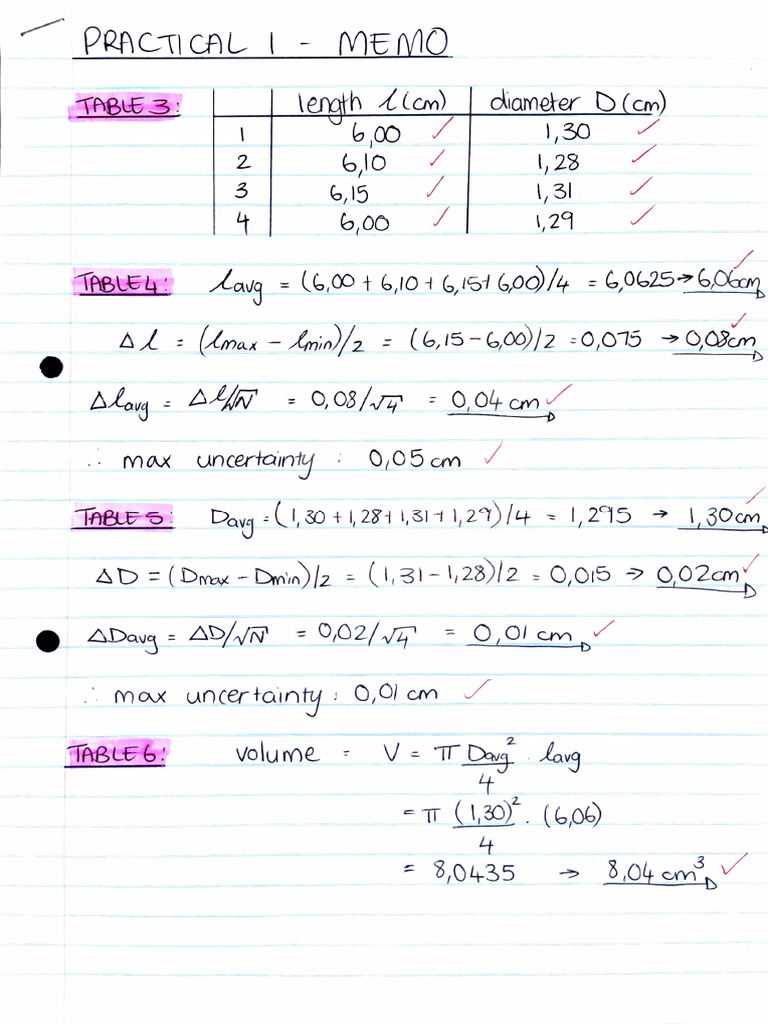 PRACTICAL 1 - MEMO
TABLE 3: length l (cm) diameter D (cm)
1 6,00 ✓ 1,30 ✓
2 6,10 ✓ 1,28 ✓
3 6,15 ✓ 1,31 ✓
4 6,00 ✓ 1,29 ✓
TABLE 4: lavg = (6,00 + 6,10 + 6,15 + 6,00)/4 = 6,0625 → 6,06cm ✓
Δl = (lmax - lmin)/2 = (6,15 - 6,00)/2 = 0,075 → 0,08cm ✓
Δlavg = Δl/√N = 0,08/√4 = 0,04 cm ✓
∴ max uncertainty : 0,05 cm ✓
TABLE 5: Davg = (1,30 + 1,28 + 1,31 + 1,29)/4 = 1,295 → 1,30cm ✓
ΔD = (Dmax - Dmin)/2 = (1,31 - 1,28)/2 = 0,015 → 0,02cm ✓
ΔDavg = ΔD/√N = 0,02/√4 = 0,01 cm ✓
∴ max uncertainty : 0,01 cm ✓
TABLE 6: volume = V = π Davg²/4 · lavg
= π (1,30)²/4 · (6,06)
= 8,0435 → 8,04 cm³ ✓